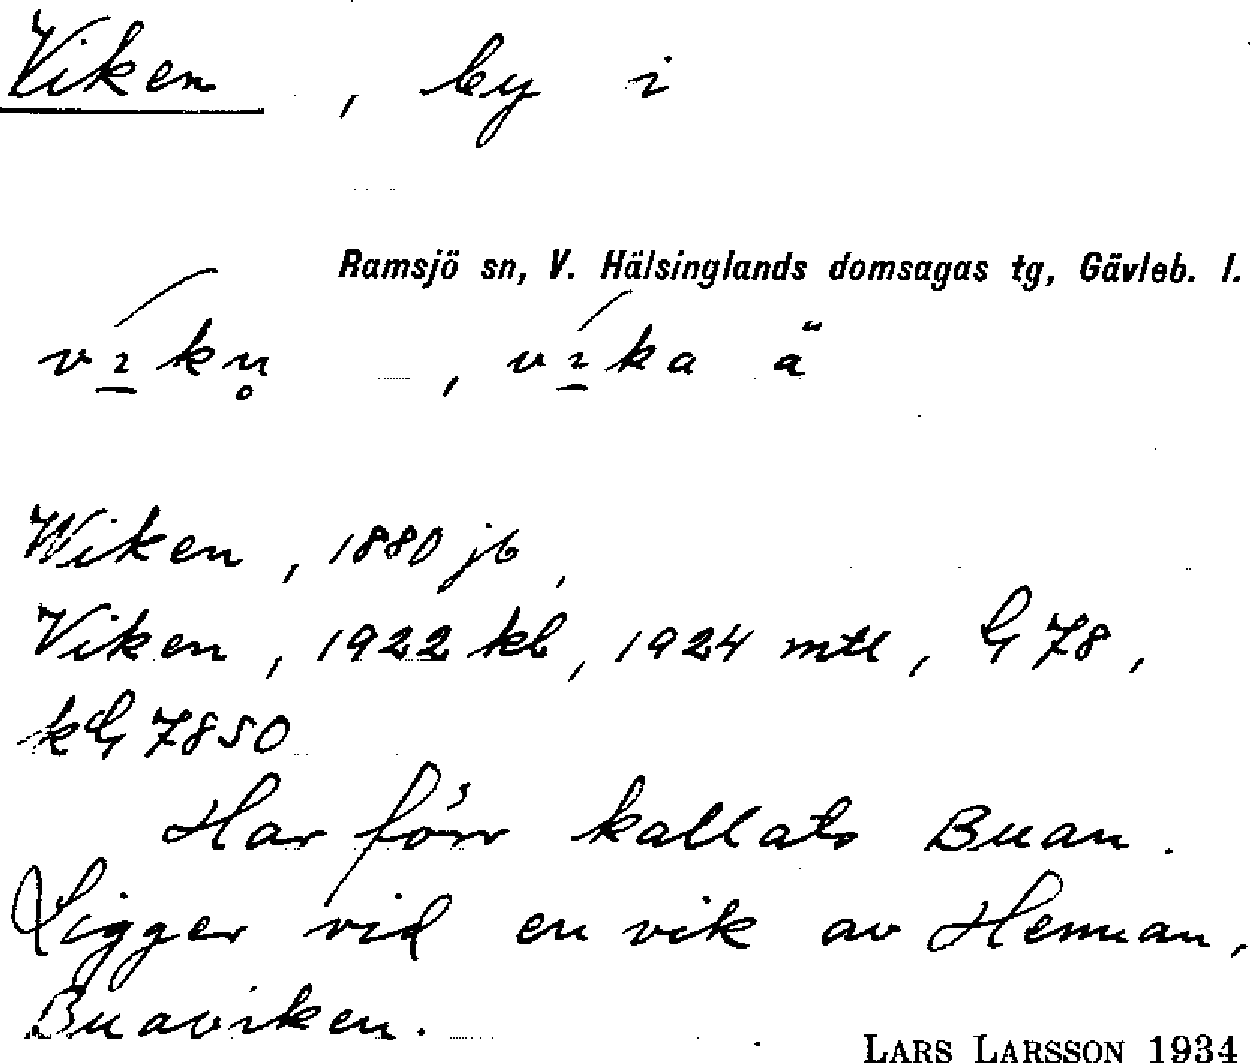 Viken, by i
Ramsjö sn, V. Hälsinglands domsagas tg, Gävleb. l.
vı̲́kn̥ – , vı̲́ka ä
Wiken, 1880 jb,
Viken, 1922 kb, 1924 mtl, G 78,
kG 7850
Har förr kallats Buan.
Ligger vid en vik av Hennan,
Buaviken.
LARS LARSSON 1934